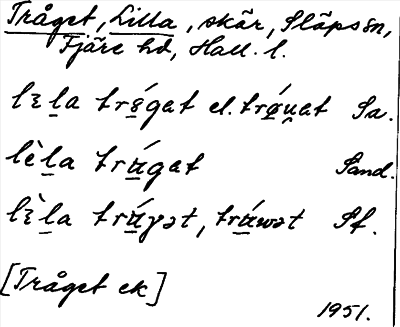 Tråget, Lilla, skär, Släps sn,
Fjäre hd, Hall. l.
lɛl̠a trǿ̠gat el. trǿ̠u̯at Sa.
lèl̠a trá̠gat Sand.
lɛ̀l̠a trá̠γət, trá̠wət Sf.
[Tråget ek]
1951.